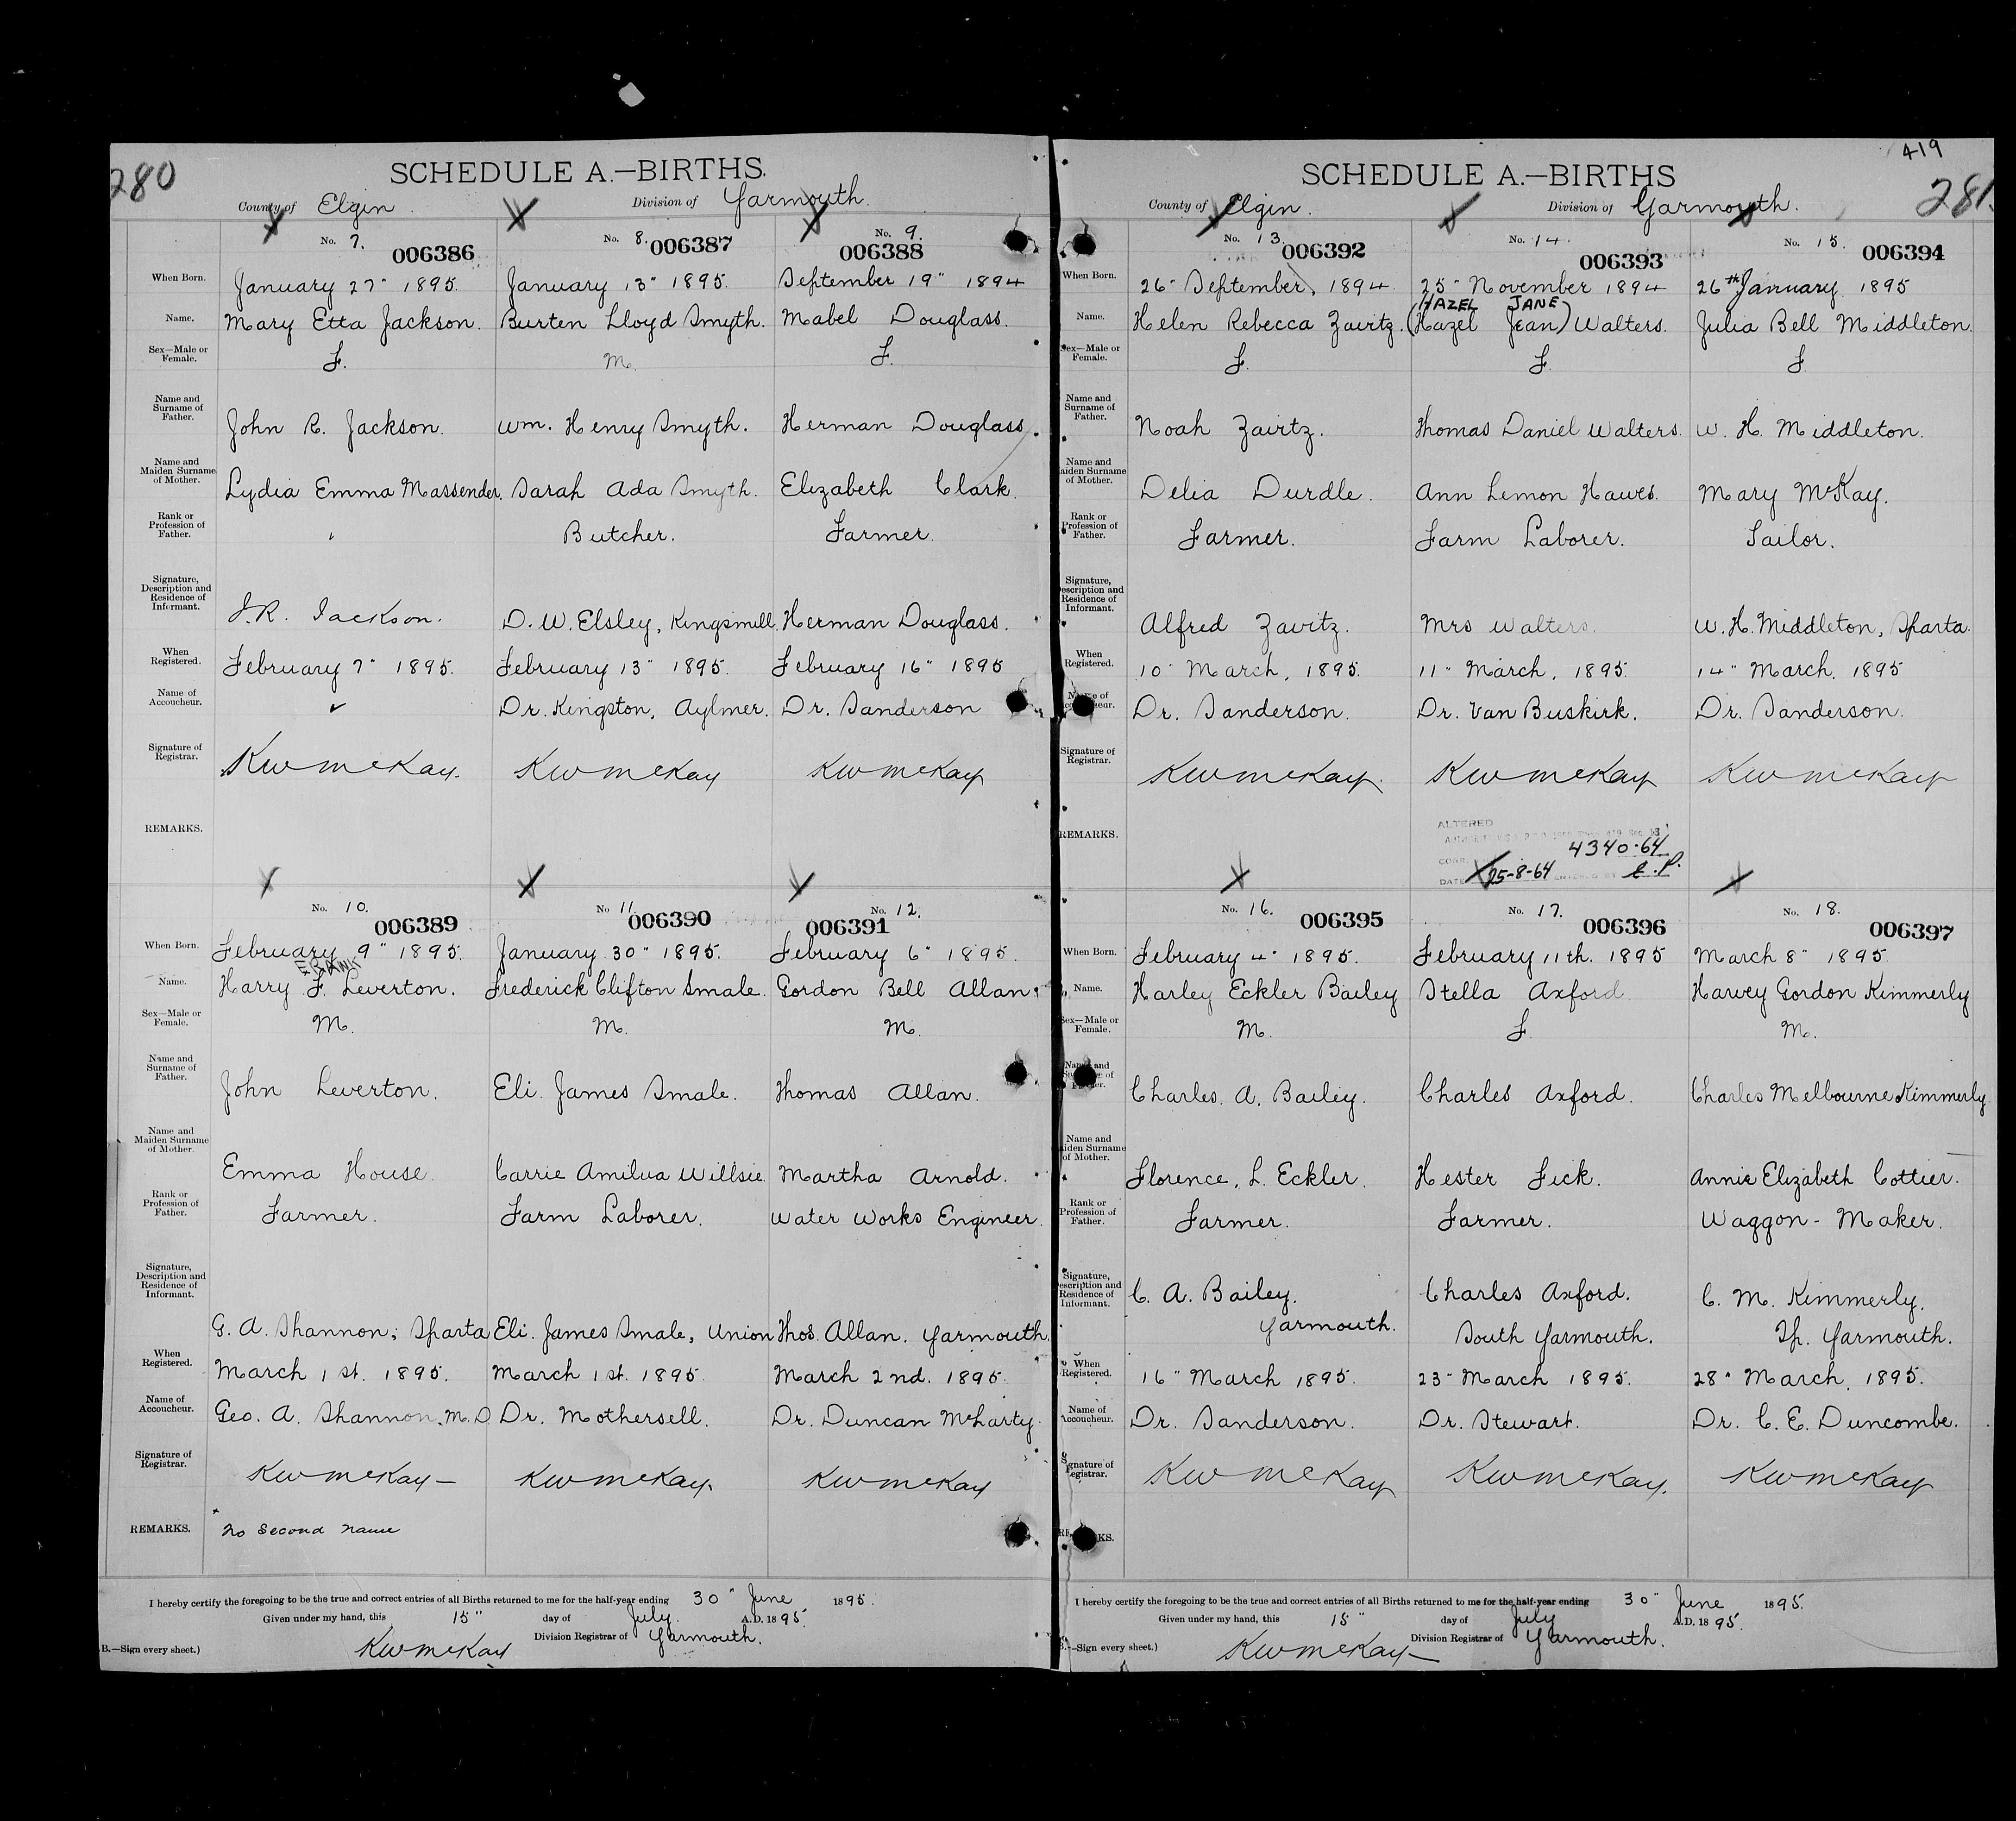 280
SCHEDULE A.—BIRTHS.
County of Elgin Division of Yarmouth.
No. 7. 006386 No. 8. 006387 No. 9. 006388
When Born. January 27" 1895. January 13" 1895. September 19" 1894
Name. Mary Etta Jackson. Burten Lloyd Smyth. Mabel Douglass.
Sex—Male or Female. F. M. F.
Name and Surname of Father. John R. Jackson. Wm. Henry Smyth. Herman Douglass
Name and Maiden Surname of Mother. Lydia Emma Massender. Sarah Ada Smyth. Elizabeth Clark.
Rank or Profession of Father. " Butcher. Farmer.
Signature, Description and Residence of Informant. J.R. Jackson. D. W. Elsley, Kingsmill. Herman Douglass.
When Registered. February 7" 1895. February 13" 1895. February 16" 1895
Name of Accoucheur. Dr. Kingston, Aylmer. Dr. Sanderson
Signature of Registrar. KW McKay. KW McKay KW McKay
REMARKS.
No. 10. 006389 No 11. 006390 No. 12. 006391
When Born. February 9" 1895. January 30" 1895. February 6" 1895.
FRANK
Name. Harry F. Leverton. Frederick Clifton Smale. Gordon Bell Allan
Sex—Male or Female. M. M. M.
Name and Surname of Father. John Leverton. Eli James Smale. Thomas Allan.
Name and Maiden Surname of Mother. Emma House. Carrie Amilva Willsie. Martha Arnold.
Rank or Profession of Father. Farmer. Farm Laborer. Water Works Engineer.
Signature, Description and Residence of Informant. G. A. Shannon, Sparta Eli. James Smale, Union Thos. Allan. Yarmouth.
When Registered. March 1st. 1895. March 1st. 1895 March 2nd. 1895.
Name of Accoucheur. Geo. A. Shannon, M.D. Dr. Mothersell. Dr. Duncan McLarty.
Signature of Registrar. KW McKay KW McKay. KW McKay
REMARKS. No Second name
I hereby certify the foregoing to be the true and correct entries of all Births returned to me for the half-year ending 30" June 1895.
Given under my hand, this 15" day of July. A.D. 1895.
Division Registrar of Yarmouth.
B.—Sign every sheet.) KW McKay
419
281.
SCHEDULE A.—BIRTHS
County of Elgin. Division of Yarmouth.
No. 13. 006392 No. 14. 006393 No. 15. 006394
When Born. 26" September, 1894. 25" November 1894 26th January 1895
HAZEL JANE
Name. Helen Rebecca Zavitz. (Hazel Jean) Walters. Julia Bell Middleton.
Sex—Male or Female. F. F. F
Name and Surname of Father. Noah Zavitz. Thomas Daniel Walters. W. H. Middleton.
Name and Maiden Surname of Mother. Delia Durdle. Ann Lemon Hawes. Mary McKay.
Rank or Profession of Father. Farmer. Farm Laborer. Tailor.
Signature, Description and Residence of Informant. Alfred Zavitz. Mrs Walters. W. H. Middleton, Sparta.
When Registered. 10" March, 1895. 11" March, 1895. 14" March, 1895
Name of Accoucheur. Dr. Sanderson. Dr. Van Buskirk. Dr. Sanderson.
Signature of Registrar. KW McKay. KW McKay KW McKay
REMARKS. ALTERED
4340-64
DATE 25-8-64 ENTERED BY E.P.
No. 16. 006395 No. 17. 006396 No. 18. 006397
When Born. February 4" 1895. February 11th. 1895 March 8" 1895.
Name. Harley Eckler Bailey Stella Axford. Harvey Gordon Kimmerly
Sex—Male or Female. M. F. M.
Name and Surname of Father. Charles. A. Bailey. Charles Axford. Charles Melbourne Kimmerly
Name and Maiden Surname of Mother. Florence. L. Eckler. Hester Fick. Annie Elizabeth Cottier.
Rank or Profession of Father. Farmer. Farmer. Waggon-Maker.
Signature, Description and Residence of Informant. C. A. Bailey. Charles Axford. C. M. Kimmerly.
Yarmouth. South Yarmouth. Tp. Yarmouth.
When Registered. 16" March 1895. 23" March 1895. 28" March, 1895.
Name of Accoucheur. Dr. Sanderson. Dr. Stewart. Dr. C. E. Duncombe.
Signature of Registrar. KW McKay KW McKay. KW McKay
I hereby certify the foregoing to be the true and correct entries of all Births returned to me for the half-year ending 30" June 1895.
Given under my hand, this 15" day of July A.D. 1895.
Division Registrar of Yarmouth.
—Sign every sheet.) KW McKay